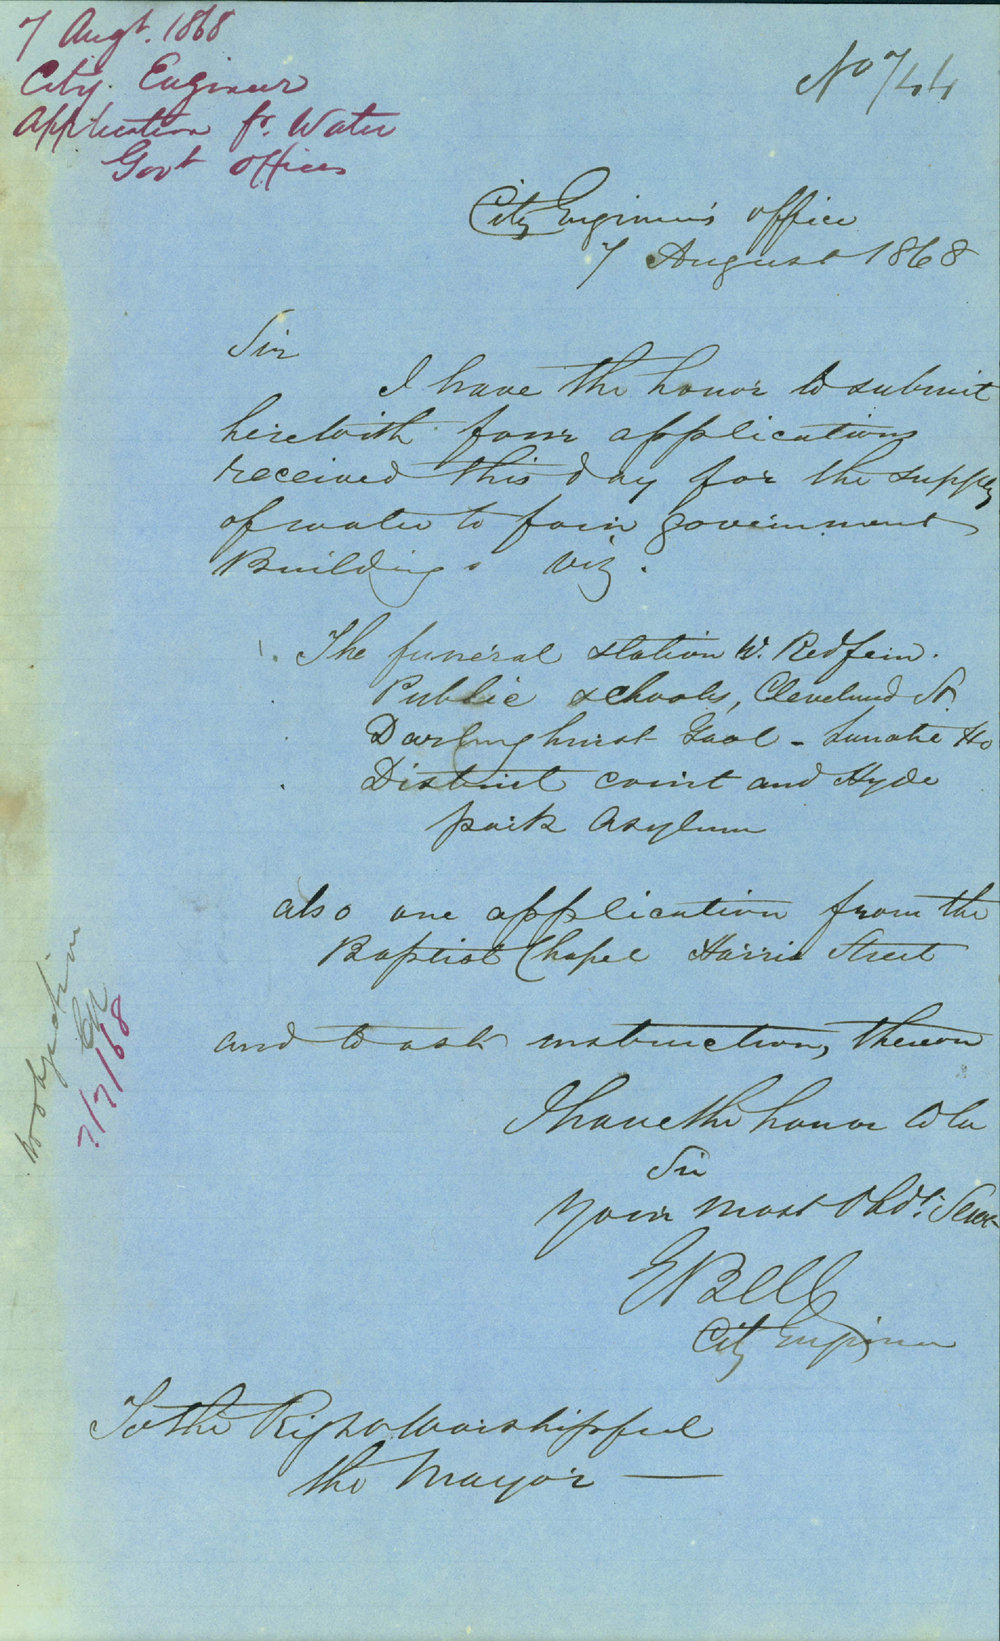 7 Augt. 1868
City Engineer
Application for Water
Govt Offices
No 744
City Engineer's office
7 August 1868
Sir
I have the honor to submit
herewith four applications
received this day for the supply
of water to four government
Buildings viz.
1. The funeral station W. Redfern.
Public schools, Cleveland St.
Darlinghurst Gaol - Lunatic Ho
District court and Hyde
park Asylum
also one application from the
Baptist Chapel Harris Street
and to ask instruction, thereon
I have the honor to be
Sir
Your most Obdt. Serv
E Bell
City Engineer
To the Right Worshipful
the Mayor —
no objection
7/7/68